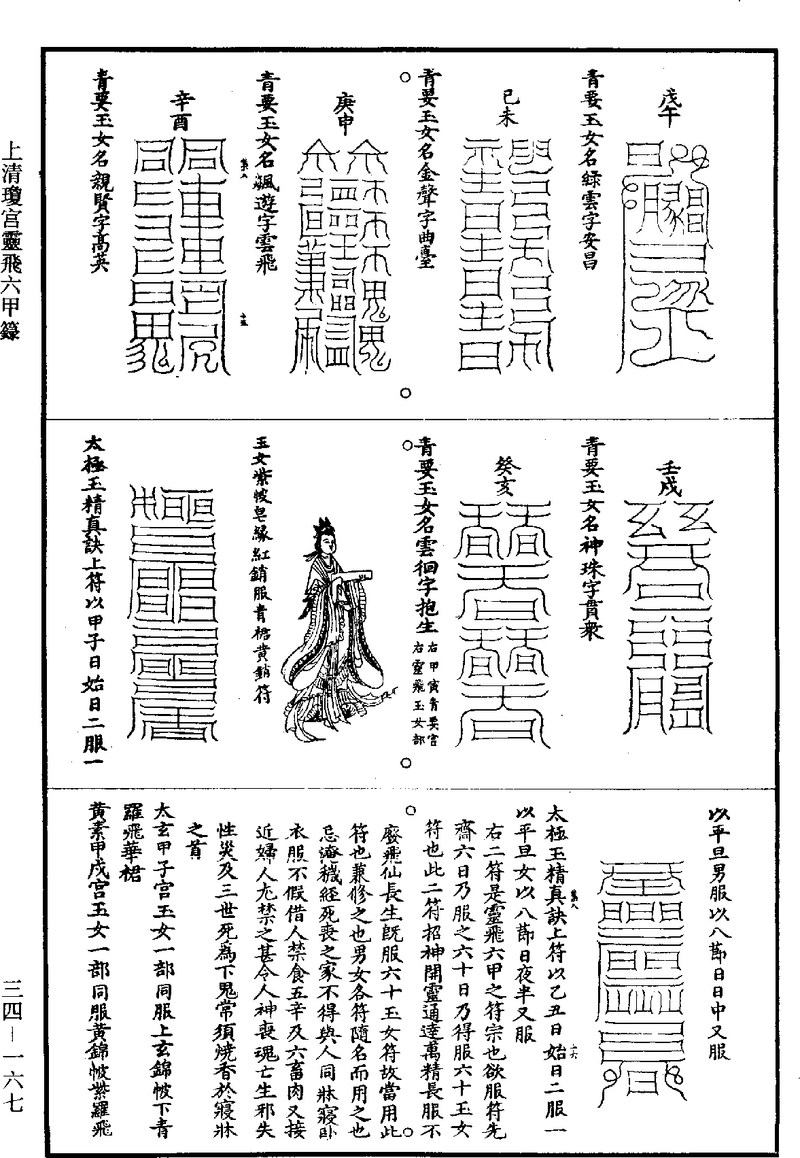 上清瓊宮靈飛六甲籙
三四—一六七
戊午
青要玉女名綠雲字安昌
己未
青要玉女名金聲字曲臺
庚申
青要玉女名飆遊字雲飛
辛酉
青要玉女名親賢字高英
壬戌
青要玉女名神珠字貫眾
癸亥
青要玉女名雲徊字抱生
右甲寅青要宮
右靈飛玉女部
玉女紫帔皂緣紅銷服青裙黄銷符
太極玉精真訣上符以甲子日始日二服一
以平旦男服以八節日日中又服
太極玉精真訣上符以乙丑日始日二服一
以平旦女以八節日夜半又服
右二符是靈飛六甲之符宗也欲服符先
齋六日乃服之六十日乃得服六十玉女
符也此二符招神開靈通達萬精長服不
廢飛仙長生旣服六十玉女符故當用此
符也兼修之也男女各符隨名而用之也
忌淹穢經死喪之家不得與人同牀寢卧
衣服不假借人禁食五辛及六畜肉又接
近婦人尤禁之甚令人神喪魂亡生邪失
性災及三世死爲下鬼常須燒香於寢牀
之首
太玄甲子宮玉女一部同服上玄錦帔下青
羅飛華裙
黄素甲戌宮玉女一部同服黄錦帔紫羅飛